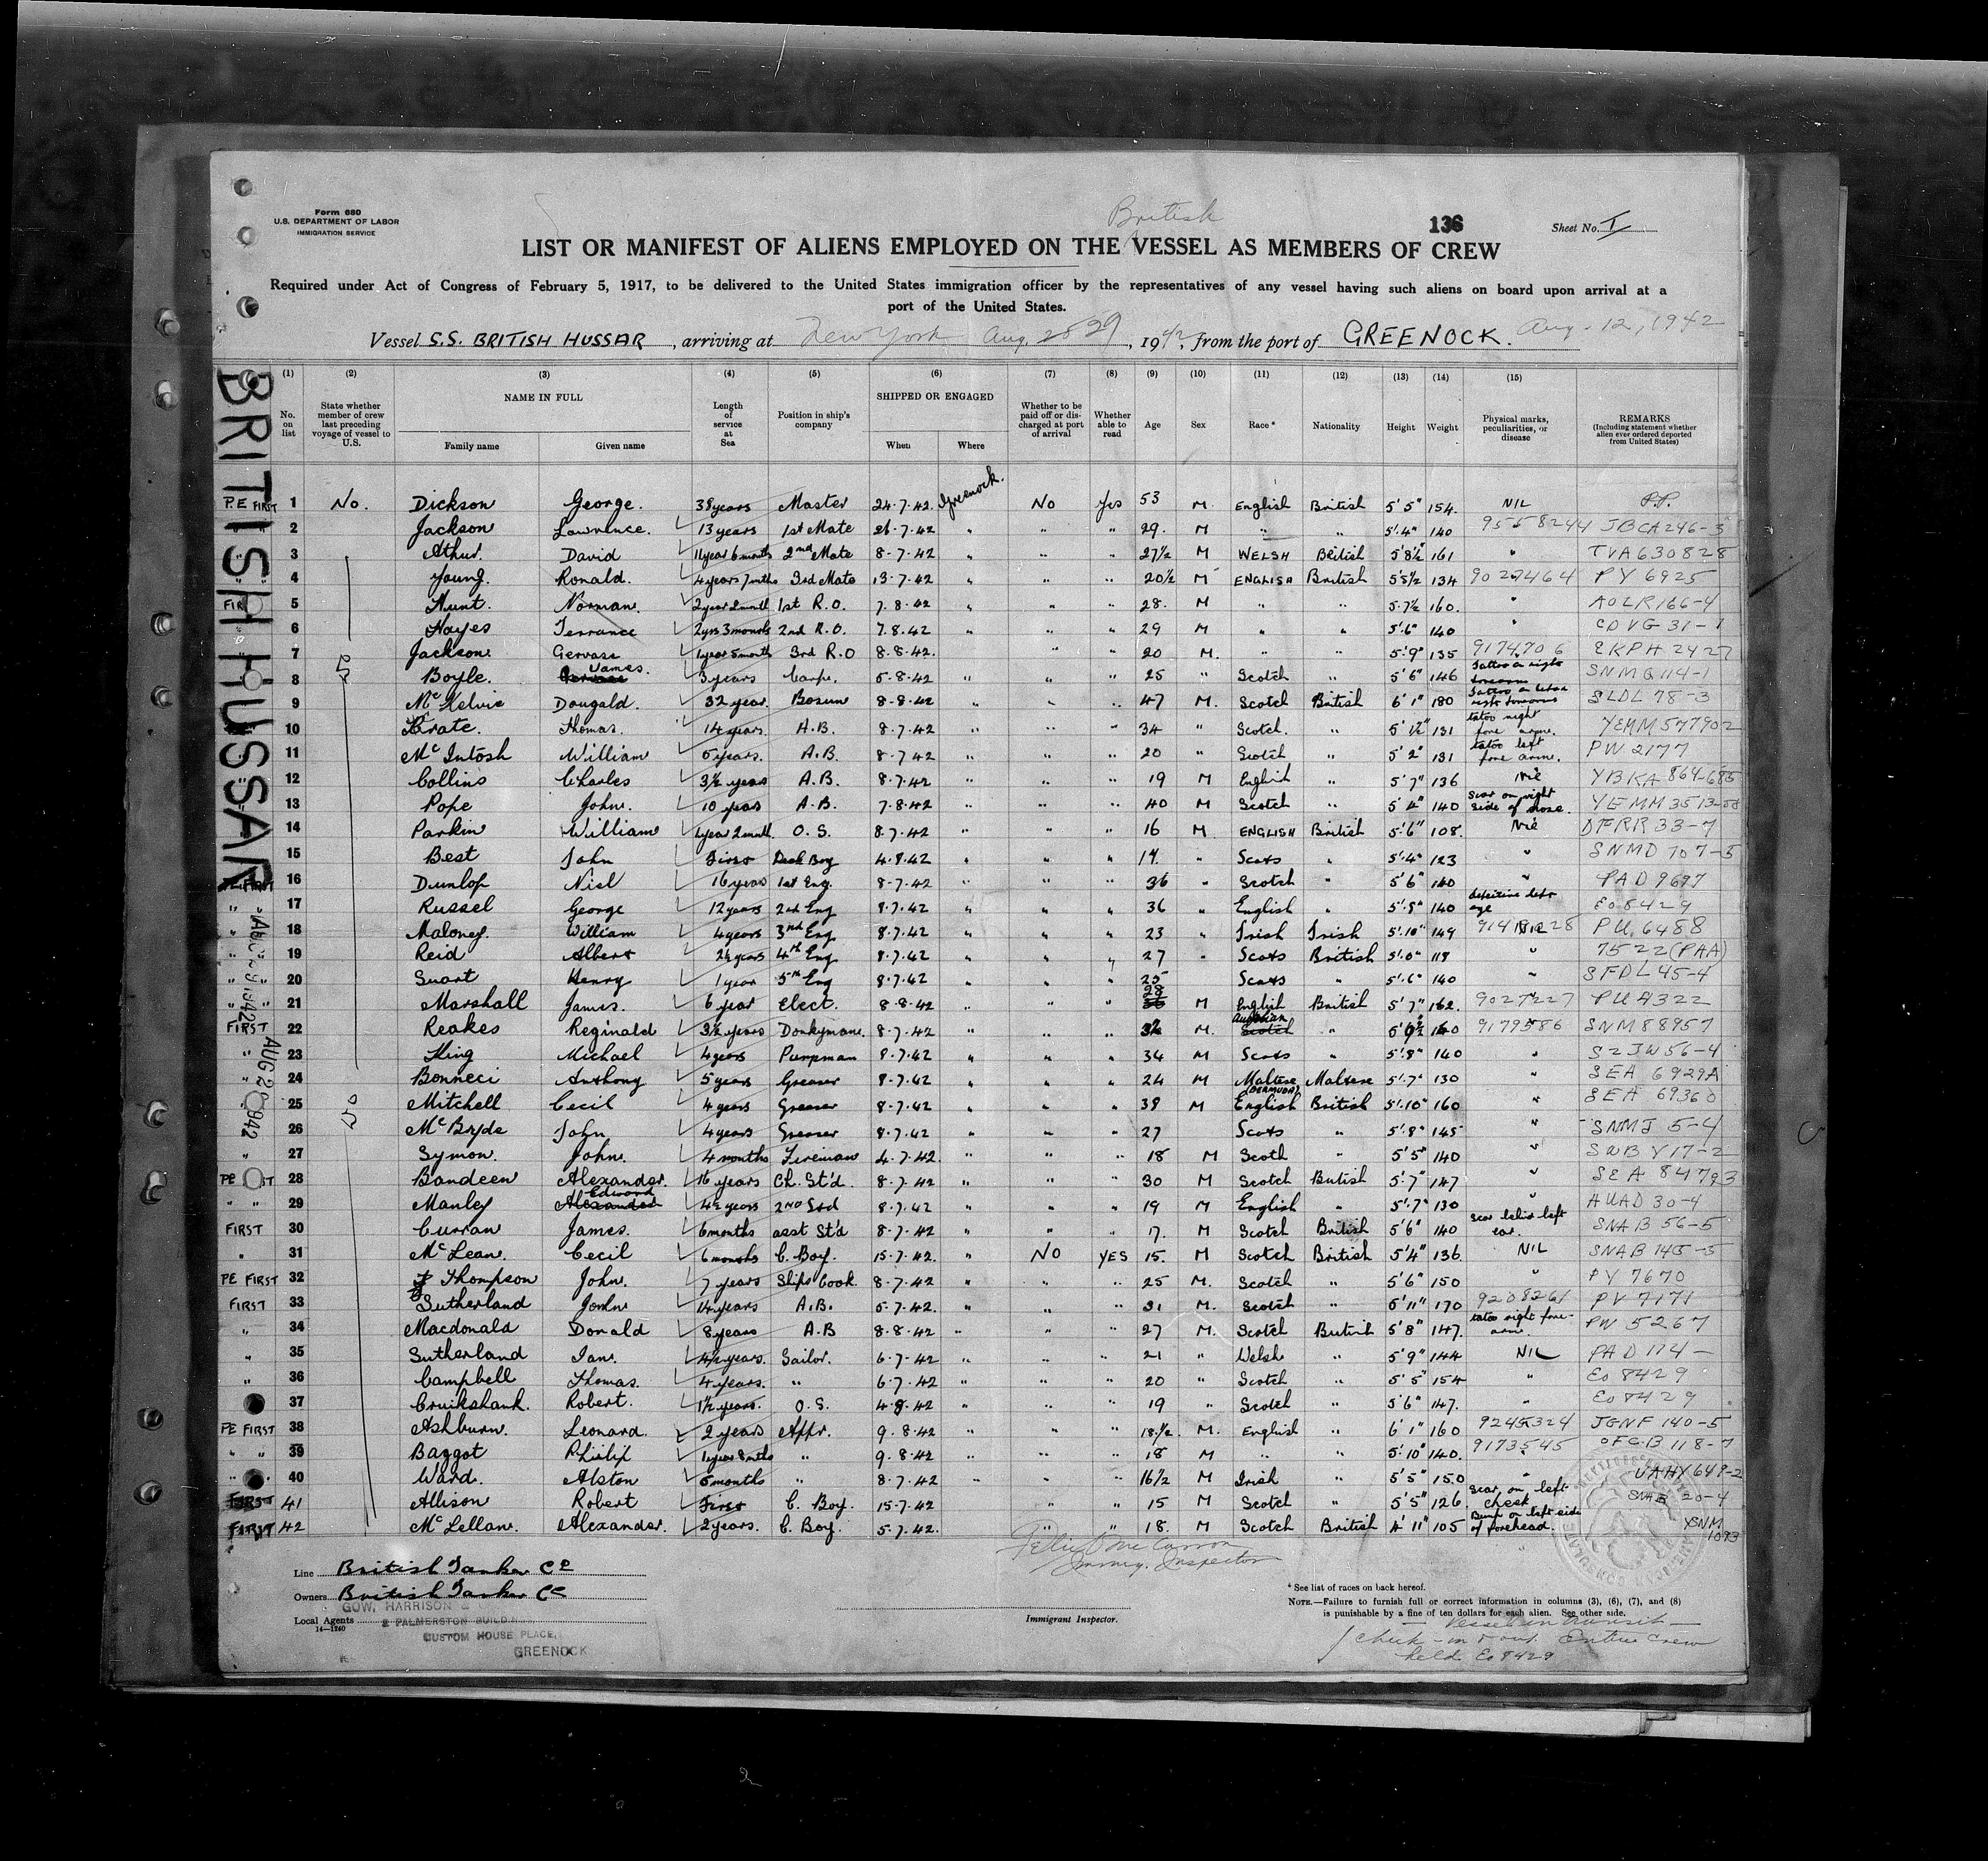 Form 680
U.S. DEPARTMENT OF LABOR
IMMIGRATION SERVICE
British
136
Sheet No. I
LIST OR MANIFEST OF ALIENS EMPLOYED ON THE VESSEL AS MEMBERS OF CREW
Required under Act of Congress of February 5, 1917, to be delivered to the United States immigration officer by the representatives of any vessel having such aliens on board upon arrival at a
port of the United States.
Vessel S.S. BRITISH HUSSAR, arriving at New York Aug. 29, 1942, from the port of GREENOCK. Aug. 12, 1942
BRITISH HUSSAR
(1) (2) (3) (4) (5) (6) (7) (8) (9) (10) (11) (12) (13) (14) (15)
No. on list
State whether member of crew last preceding voyage of vessel to U.S.
NAME IN FULL
Family name Given name
Length of service at Sea
Position in ship's company
SHIPPED OR ENGAGED
When Where
Whether to be paid off or discharged at port of arrival
Whether able to read
Age Sex Race* Nationality Height Weight
Physical marks, peculiarities, or disease
REMARKS
(Including statement whether alien ever ordered deported from United States)
P.E FIRST 1 No. Dickson George. 38 years Master 24.7.42. Greenock. No Yes 53 M English British 5'5" 154. NIL P.P.
2 Jackson Lawrence. 13 years 1st Mate 26.7.42 " " " 29. M " " 5'.4" 140 95558244 JBCA246-3
3 Athur. David 11 year 6 months 2nd Mate 8-7.42 " " " 27½ M WELSH British 5'8½" 161 " TVA630828
4 Young. Ronald. 4 years 7 mths 3rd Mate 13.7.42 " " " 20½ M ENGLISH British 5'5½ 134 9027464 PY 6925
FIRST 5 Hunt. Norman. 2 year 2 month 1st R.O. 7.8.42 " " " 28. M " " 5.7½ 160. " AOLR166-4
6 Hayes Terrance 2 yrs 3 months 2nd R.O. 7.8.42 " " " 29 M " " 5'.6" 140 " CDVG 31-1
7 Jackson. Gervase 1 year 5 month 3rd R.O 8.8.42. " " " 20 M. " " 5'.9" 135 9174706 EKPH 2427
8 Boyle. James. 3 years Carp. 5.8.42 " " " 25 " Scotch " 5'6" 146 Tattoo on right forearm SNMQ 114-1
9 McKelvie Dougald. 32 year. Bosun 8-8.42 " " " 47 M. Scotch British 6'1" 180 SLDL 78-3
10 Brate. Thomas. 14 years. A.B. 8.7.42 " " " 34 " Scotch. " 5'1½" 131 tatoo right fore arm. YEMM 577902
11 McIntosh William 5 years. A.B. 8.7.42 " " " 20 " Scotch " 5'2" 131 tatoo left fore arm. PW 2177
12 Collins Charles 3½ years A.B. 8.7.42 " " " 19 M English " 5'7" 136 Nil YBKA 864-685
13 Pope John. 10 years A.B. 7.8.42 " " " 40 M Scotch " 5'4" 140 scar on right side of nose. YEMM 3513-58
14 Parkin William 1 year 2 month. O.S. 8.7.42 " " " 16 M ENGLISH British 5'.6" 108. Nil DFRR 33-7
15 Best John First Deck Boy 4.8.42 " " " 17. " Scots " 5'.4" 123 " SNMD 707-5
16 Dunlop Niel 16 year 1st Eng. 8-7.42 " " " 36 " Scotch " 5'6" 140 " PAD 9697
17 Russel George 12 years 2nd Eng 8.7.42 " " " 36 " English " 5'.8" 140 Eo 8429
18 Maloney. William 4 years 3rd Eng 8.7.42 " " " 23 " Irish Irish 5'.10" 149 PU 6488
19 Reid Albert 2½ years 4th Eng 8.7.42 " " " 27 " Scots British 5'.0" 118 " 7522 (PAA)
20 Suart Henry 1 year 5th Eng 8.7.42 " " " 25 Scots " 5'.6" 140 " SFDL 45-4
21 Marshall James. 6 year Elect. 8.8.42 " " " 28 M English British 5'.7" 162. 9027227 PU 4322
FIRST 22 Reakes Reginald 3½ years Donkyman. 8-7.42 " " " M. Scotch " 140 9179586 SNM88957
23 King Michael 4 years Pumpman 8.7.42 " " " 34 M Scots " 5'.8" 140 " S2JW56-4
24 Bonneci Anthony 5 years Greaser 8.7.42 " " " 24 M Maltese Maltese 5'.7" 130 " SEA 6929A
25 No Mitchell Cecil 4 years Greaser 8.7.42 " " " 38 M (BERMUDA) English British 5'.10" 160 " SEA 69360
26 McBryde John 4 years Greaser 8.7.42 " " " 27 Scots " 5'.8" 145 " SNMJ 5-4
27 Symon. John. 4 months Fireman 4.7.42. " " " 18 M Scoth " 5'5" 140 " SNBY17-2
28 Bandeen Alexander. 16 years Ch. St'd. 8.7.42 " " " 30 M Scotch British 5'.7" 147 " SEA 84793
29 Manley Edward Alexander 4½ years 2ND Std 8.7.42 " " " 19 M English " 5'.7" 130 " AUAD 30-4
FIRST 30 Curran James. 6 months asst St'd 8-7.42 " " " 17. M Scotch British 5'6" 140 scar behind left ear. SNAB 56-5
" 31 McLean. Cecil 6 months C. Boy. 15.7.42. " NO YES 15. M Scotch British 5'4" 136. NIL SNAB 145-5
PE FIRST 32 Thompson John. 7 years Ships Cook. 8-7.42 " " " 25 M. Scotch " 5'6" 150 " PY 7670
FIRST 33 Sutherland John 14 years A.B. 5.7.42. " " " 31 M. Scotch " 5'11" 170 9208261 PV 7171
" 34 Macdonald Donald 8 years A.B 8.8.42 " " " 27 M. Scotch British 5'8" 147. tatoo right fore-arm. PW 5267
" 35 Sutherland Ian. 4½ years. Sailor. 6.7-42 " " " 21 " Welsh " 5'9" 144 NIL PAD 174-
" 36 Campbell Thomas. 4 years. " 6.7.42 " " " 20 " Scotch " 5'5" 154 " Eo 8429
37 Cruikshank. Robert. 1½ years. O.S. 4.8.42 " " " 19 " Scotch " 5'6" 147. " Eo 8429
PE FIRST 38 Ashburn. Leonard. 2 years Appr. 9.8.42 " " " 18½. M. English " 6'1" 160 9245324 JGNF 140-5
" " 39 Baggot Philip 1 year 8 mths " 9.8.42 " " " 18 M " " 5'.10" 140. 9173545 OFCB 118-7
40 Ward. Alston 5 months " 8.7.42 " " " 16½ M Irish " 5'5" 150 " UAHY649-2
FIRST 41 Allison Robert First C. Boy. 15.7.42 " " 15 M Scotch " 5'5" 126. Scar on left cheek SNAB 20-4
FIRST 42 McLellan. Alexander. 2 years. C. Boy. 5.7.42. " " 18. M Scotch British 4'11" 105 Bump on left side of forehead. YSNM 1093
Immig. Inspector
Line British Tanker Co
Owners British Tanker Co
Local Agents GOW, HARRISON &
2 PALMERSTON BUILDINGS,
CUSTOM HOUSE PLACE,
GREENOCK
14-1240
Immigrant Inspector.
* See list of races on back hereof.
NOTE.—Failure to furnish full or correct information in columns (3), (6), (7), and (8)
is punishable by a fine of ten dollars for each alien. See other side.
Vessel in transit
check-in & out. Entire crew
held Eo 8429